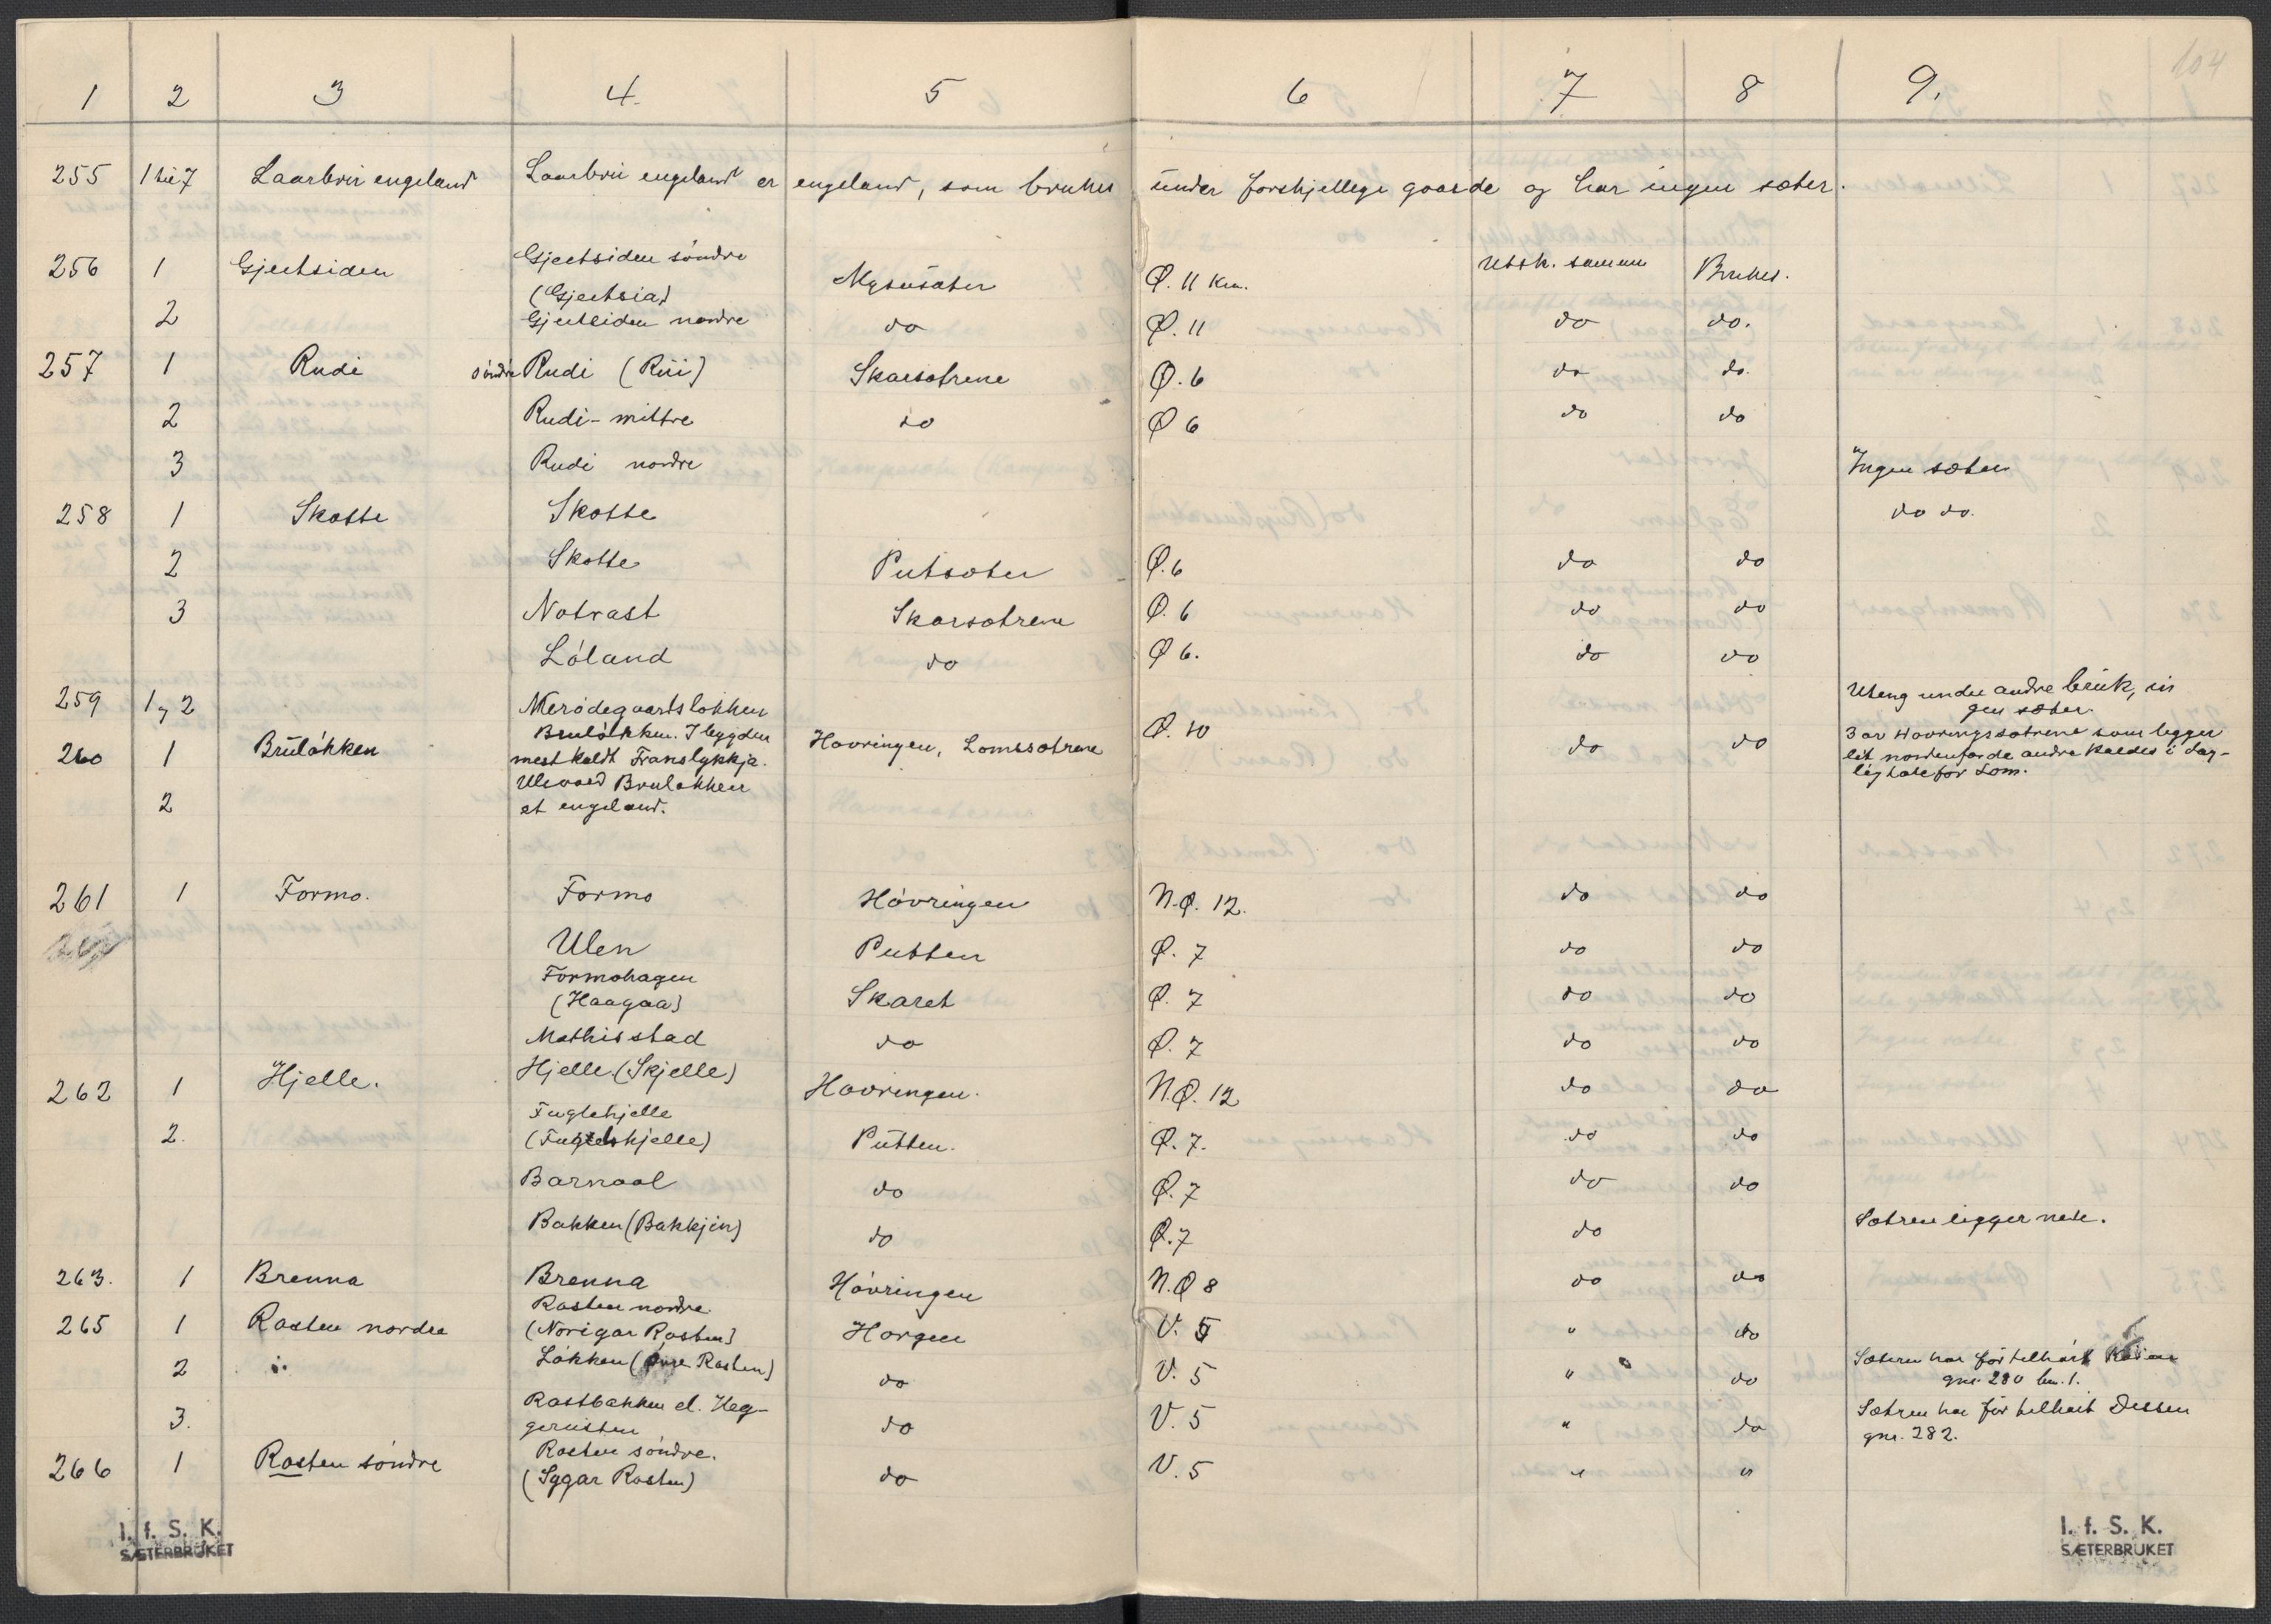 104
1 2 3 4. 5 6 7 8 9.
255 1 til 7 Laarbrui engeland Laarbrui engeland er engeland, som brukes under forskjellege gaarde og har ingen sæter.
256 1 Gjeitsiden Gjeitsiden søndre (Gjeitsia) Mysusæter Ø. 11 km. Utsk. samme Brukes.
2 Gjeitsiden nordre do Ø. 11 do do.
257 1 Rudi søndre Rudi (Rüi) Skarsætrene Ø. 6 do do.
2 Rudi - mittre do Ø 6 do do
3 Rudi nordre Ingen sæter
258 1 Skotte Skotte do do.
2 Skotte Putsæter Ø. 6 do do
3 Notrast Skarsætrene Ø. 6 do do
Lóland do Ø 6. do do
259 1 og 2 Uteng under andre bruk, in
gen sæter.
260 1 Brülókken Brulókken. I bygden Hovringen, Lomssætrene Ø. 10 do do 3 av Hovringssætrene som ligger
mest kaldt Franslykkja. lit nordenfor de andre kaldes i dag-
lig tale for Lom.
2 Brulokken
et engeland.
261 1 Formo. Formo Hóvringen N.Ø. 12. do do
Ulen Putten Ø. 7 do do
Formohagen
(Haagaa) Skaret Ø. 7 do do
Mathisstad do Ø. 7 do do
262 1 Hjelle. Hjelle (Skjelle) Hovringen. N.Ø. 12 do do
2. Fuglehjelle
(Fugleskjelle) Pütten. Ø. 7. do do
Barnaal do Ø. 7 do do
Bakken (Bakkjin) do Ø. 7 do Sætren ligger nede.
263. 1 Brenna Brenna Hóvringen N.Ø 8 do do
265 1 Rosten nordre Rosten nordre
(Norigar Rosten) Horgen V. 5 " do
2 Lókken ( Rosten) do V. 5 " do Sæteren har før tilhørt
gnr. 280 bn. 1.
3. Rostbakken el. Heg-
geriisten do V. 5 " do Sætren har før tilhørt
gnr. 282.
266 1 Rosten sóndre Rosten sóndre.
(Sygar Rosten) do V. 5 " "
I. f. S. K.
SÆTERBRUKET
I. f. S. K.
SÆTERBRUKET